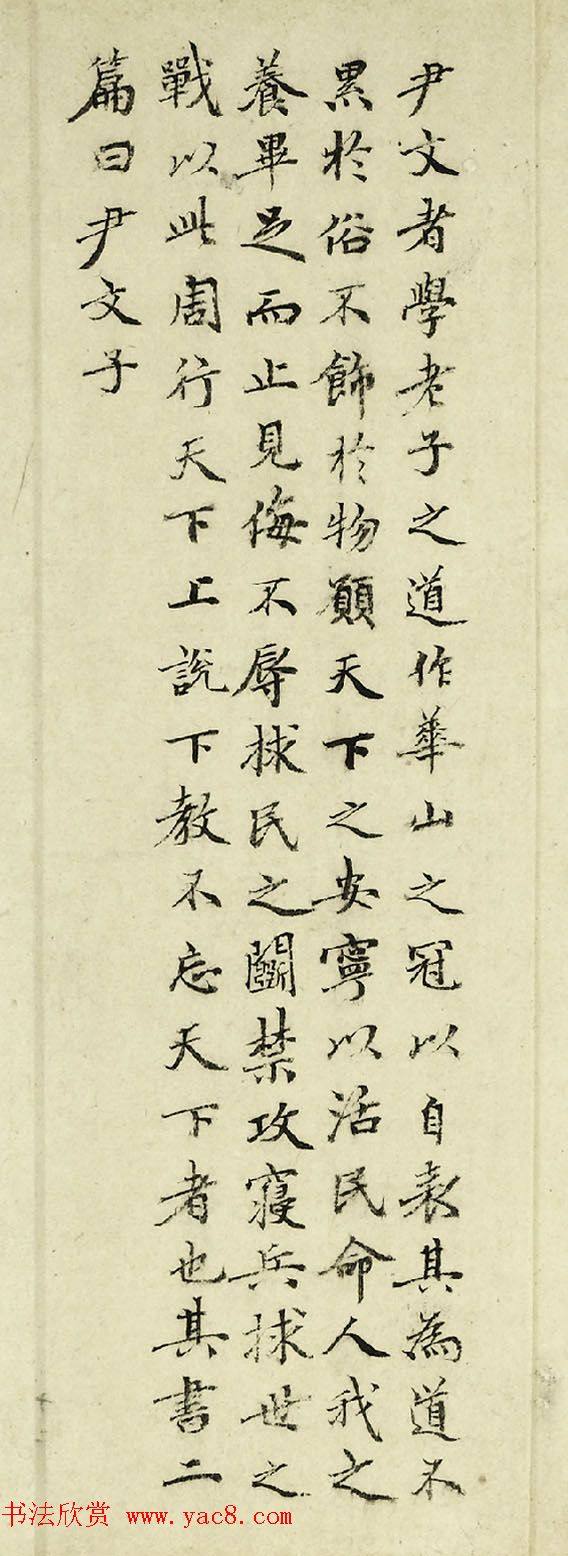 尹文者學老子之道作華山之冠以自表其為道不
累於俗不飾於物願天下之安寧以活民命人我之
養畢足而止見侮不辱捄民之鬬禁攻寢兵捄世之
戰以此周行天下上說下教不忘天下者也其書二
篇曰尹文子
书法欣赏 www.yac8.com